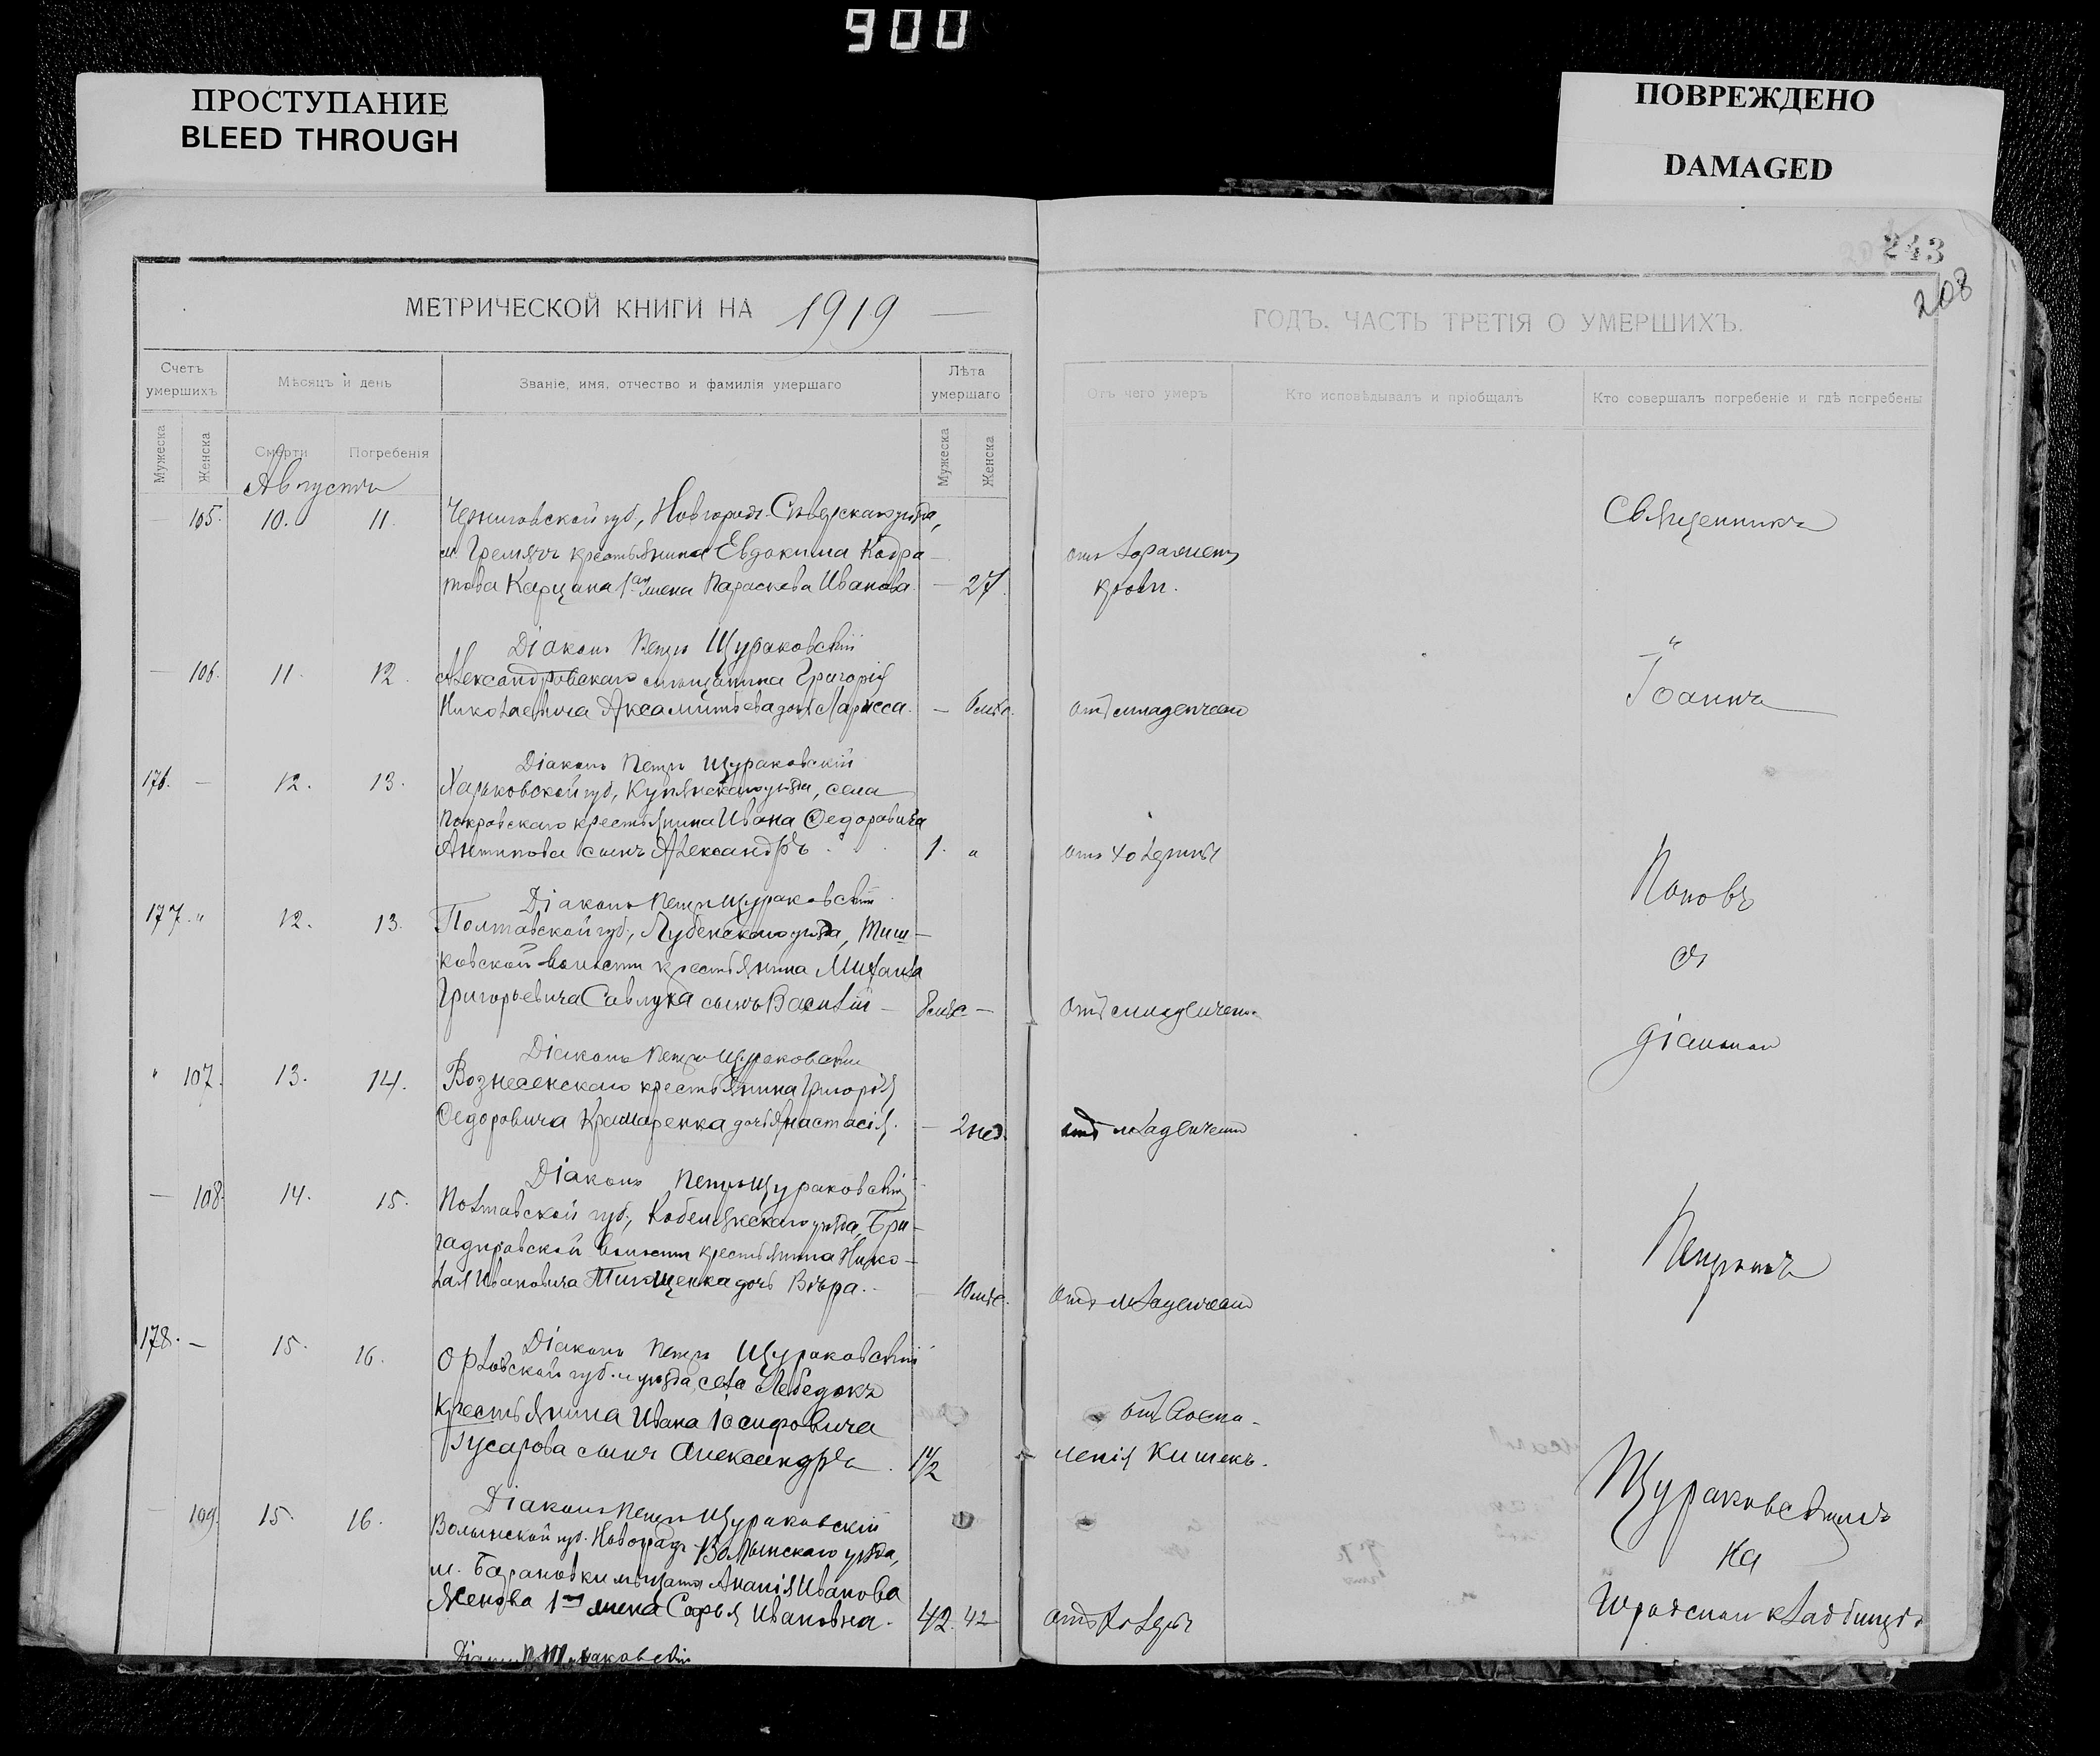 900
ПРОСТУПАНИЕ
BLEED THROUGH
ПОВРЕЖДЕНО
DAMAGED
243
208
МЕТРИЧЕСКОЙ КНИГИ НА 1919
ГОДЪ. ЧАСТЬ ТРЕТІЯ О УМЕРШИХЪ.
Счетъ умершихъ
Мѣсяцъ и день
Званіе, имя, отчество и фамилія умершаго
Лѣта умершаго
Отъ чего умеръ
Кто исповѣдывалъ и пріобщалъ
Кто совершалъ погребеніе и гдѣ погребены
Мужеска
Женска
Смерти
Погребенія
Мужеска
Женска
Августъ
— 105. 10. 11. Черниговской губ., Новгородъ-Сѣверскаго уѣзда,
м. Гремячъ крестьянина Евдокима Кодра-
това Карцана 1ая жена Параскева Иванова. — 27.
отъ заражения
крови.
Священникъ
Діаконъ Петръ Щураковскій
— 106. 11. 12. Александровскаго мѣщанина Григорія
Николаевича Аксамитьева дочь Лариса. — 6 мѣс.
отъ младенческ
Іоаннъ
Діаконъ Петръ Щураковскій
176. — 12. 13. Харьковской губ., Купянскаго уѣзда, села
Покровскаго крестьянина Ивана Федоровича
Антипова сынъ Александръ 1. "
отъ холерины
Поповъ
Діаконъ Петръ Щураковскій
177. " 12. 13. Полтавской губ., Лубенскаго уѣзда, Тиш-
ковской волости крестьянина Михаила
Григорьевича Савлука сынъ Василій — 8 мѣс —
отъ младенческ.
съ
діаконом
Діаконъ Петръ Щураковскій
" 107. 13. 14. Вознесенскаго крестьянина Григорія
Федоровича Крамаренка дочь Анастасія. — 2 нед.
отъ младенческ
Діаконъ Петръ Щураковскій
— 108. 14. 15. Полтавской губ., Кобелякскаго уѣзда, Бри-
гадировской волости крестьянина Нико-
лая Ивановича Тимщенка дочь Вѣра. — 10 мѣс.
отъ младенческ
Петромъ
Діаконъ Петръ Щураковскій
178. — 15. 16. Орловской губ. и уѣзда, села Лебедокъ
Крестьянина Ивана Іосифовича
Гусарова сынъ Александръ. 1 1/2
отъ воспа-
ленія кишекъ.
Діаконъ Петръ Щураковскій
— 109. 15. 16. Волынской губ. Новоградъ-Волынскаго уѣзда,
м. Барановки мѣщан. Ананія Иванова
1ая жена Софья Ивановна. 42. 42
отъ холеры
Щураковскимъ
на
городском кладбищѣ.
Діаконъ П. Щураковскій